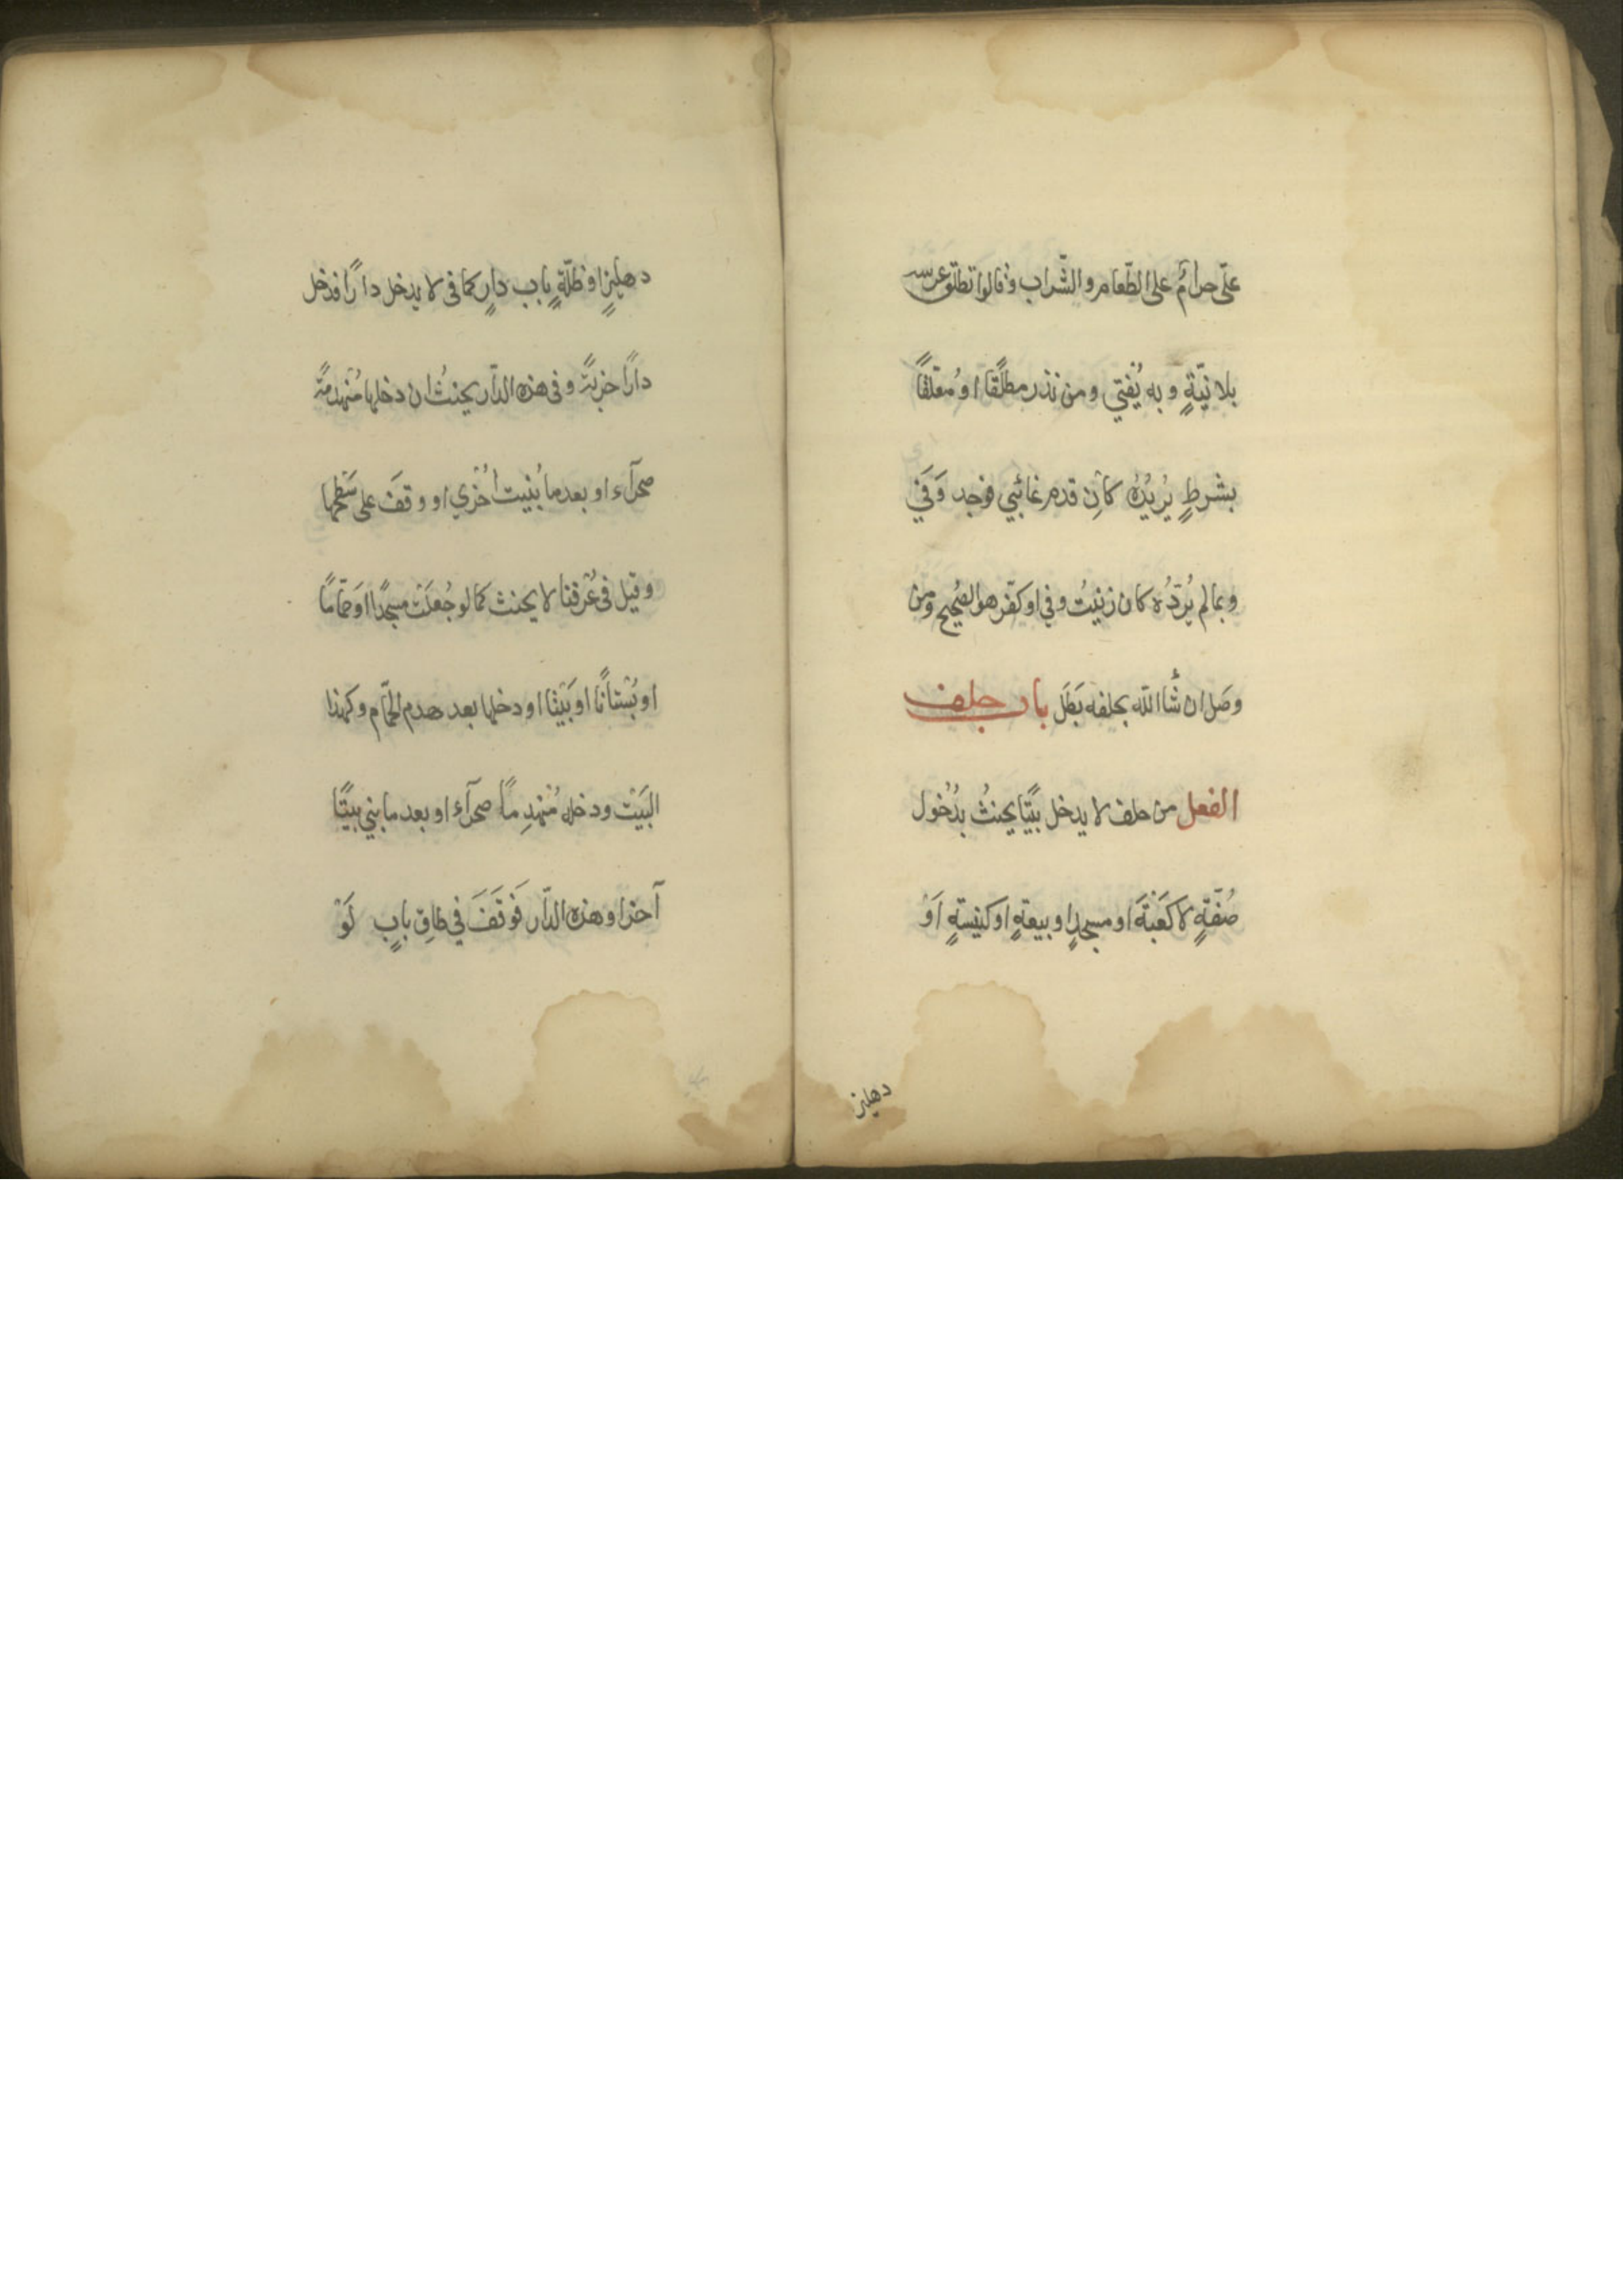 علىّ حرامٌ على الطّعام والشّراب وقالوا تطلق عرسه
بلا نيّةٍ وبه يُفتي ومن نذر مطلقًا او مُعلّقًا
بشرطٍ يُريدُهُ كانِ قدم غائبي فوجد وَفي
وبما لم يُرِدْه كان زنيتُ وفي او كفّر هو الصّحيح ومن
وصَل ان شآ الله بحلفه بَطَل باب حلف
الفعل من حلف لا يدخل بيتًا يحنثُ بدُخول
صُفّةٍ لا كعَبْةَ او مسجدٍ او بيعةٍ او كنيسةٍ اَوْ
دهليز
دهليزٍ او ظلّةِ بابِ دارٍ كما في لا يدخل دارًا فدخل
دارًا خربةً وفي هذه الدّار يحنثُ ان دخلها مُنهدمةً
صحرآء او بعد ما بُنيت اُخْري او وقفَ على سَطْحها
وقيل في عُرفنا لا يحنث كما لو جُعلَتْ مسجدًا او حمّامًا
او بُسْتانًا او بَيْتا او دخلها بعد هدم الحمّام وكهذا
البَيْت ودخله مُنْهدِمًا صحرآء او بعد ما بني بيتًا
آخر او هذه الدّار فوَقَفَ في طاقِ بابٍ لَوْ